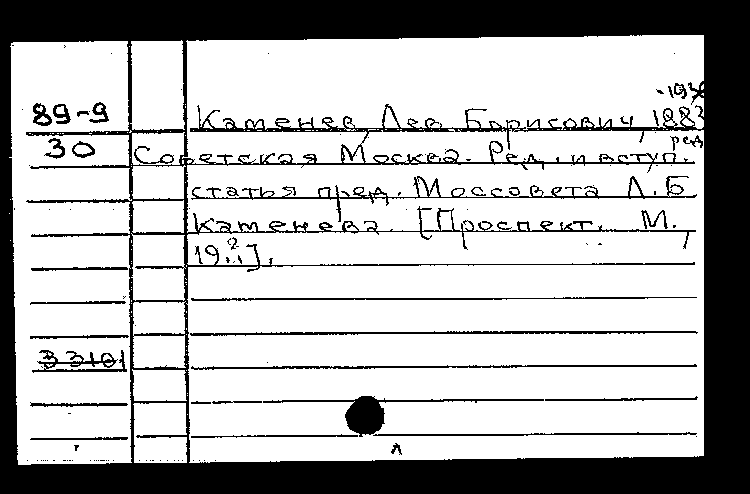 -1936
89-9 Каменев, Лев Борисович, 1883
ред.
30 Советская Москва. Ред. и вступ.
статья пред. Моссовета Л.Б
Каменева. [Проспект. М.,
19..].
33101